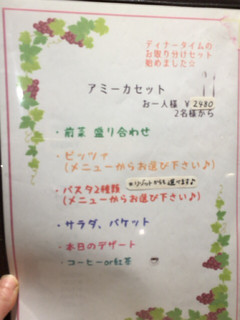 ディナータイムの
お取り分けセット
始めました☆
アミーカセット
お一人様 ¥2480
2名様から
・前菜 盛り合わせ
・ピッツァ
(メニューからお選び下さい♪)
・パスタ2種類 *リゾットからも選べます♪
(メニューからお選び下さい♪)
・サラダ、バケット
・本日のデザート
・コーヒーor紅茶